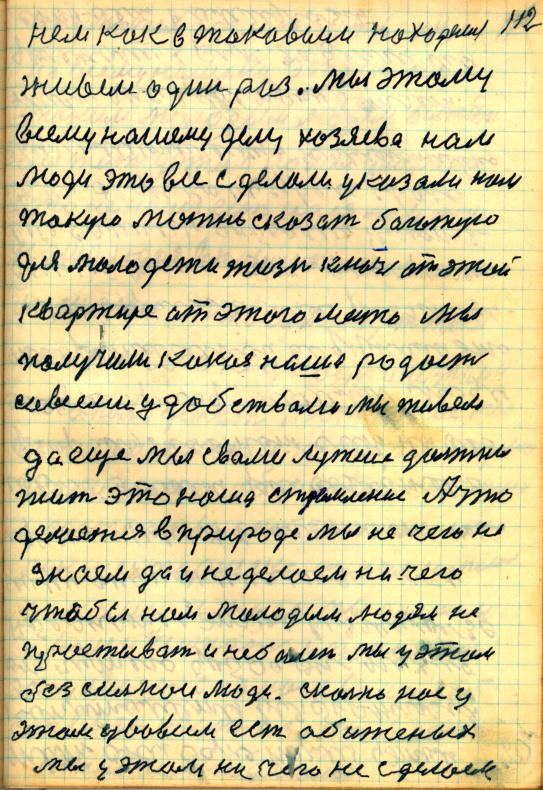 112
нем как в таковым находимся
живем один раз. мы этому
всему нашему делу хозяева нам
люди это все сделали указали нам
такую можно сказат большую
для молодежи жизн ключ от этой
квартире от этого место мы
получили какая наша родост
совсеми удобствами мы живем
да еще мы свами лутше должны
жит это наша стремление А что
делается в природе мы не чего не
знаем да и неделаем ни чего
чтобы нам молодым людям не
простыват и неболет мы у этом
безсилнои люди. сколко нас у
этом увовсим ест обиженых
мы у этом ни чего не сделаем